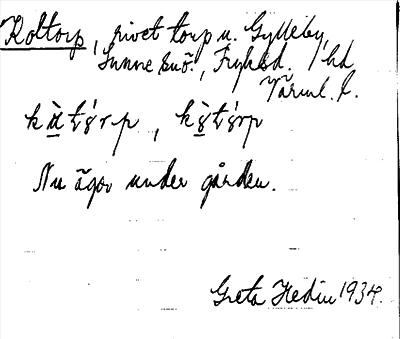 Koltorp, rivet torp u. Gylleby,
Sunne snö., Fryksd. hd
Värml. l.
kὺtórp, kòtórp
Nu ägor under gården.
Greta Hedin 1934.